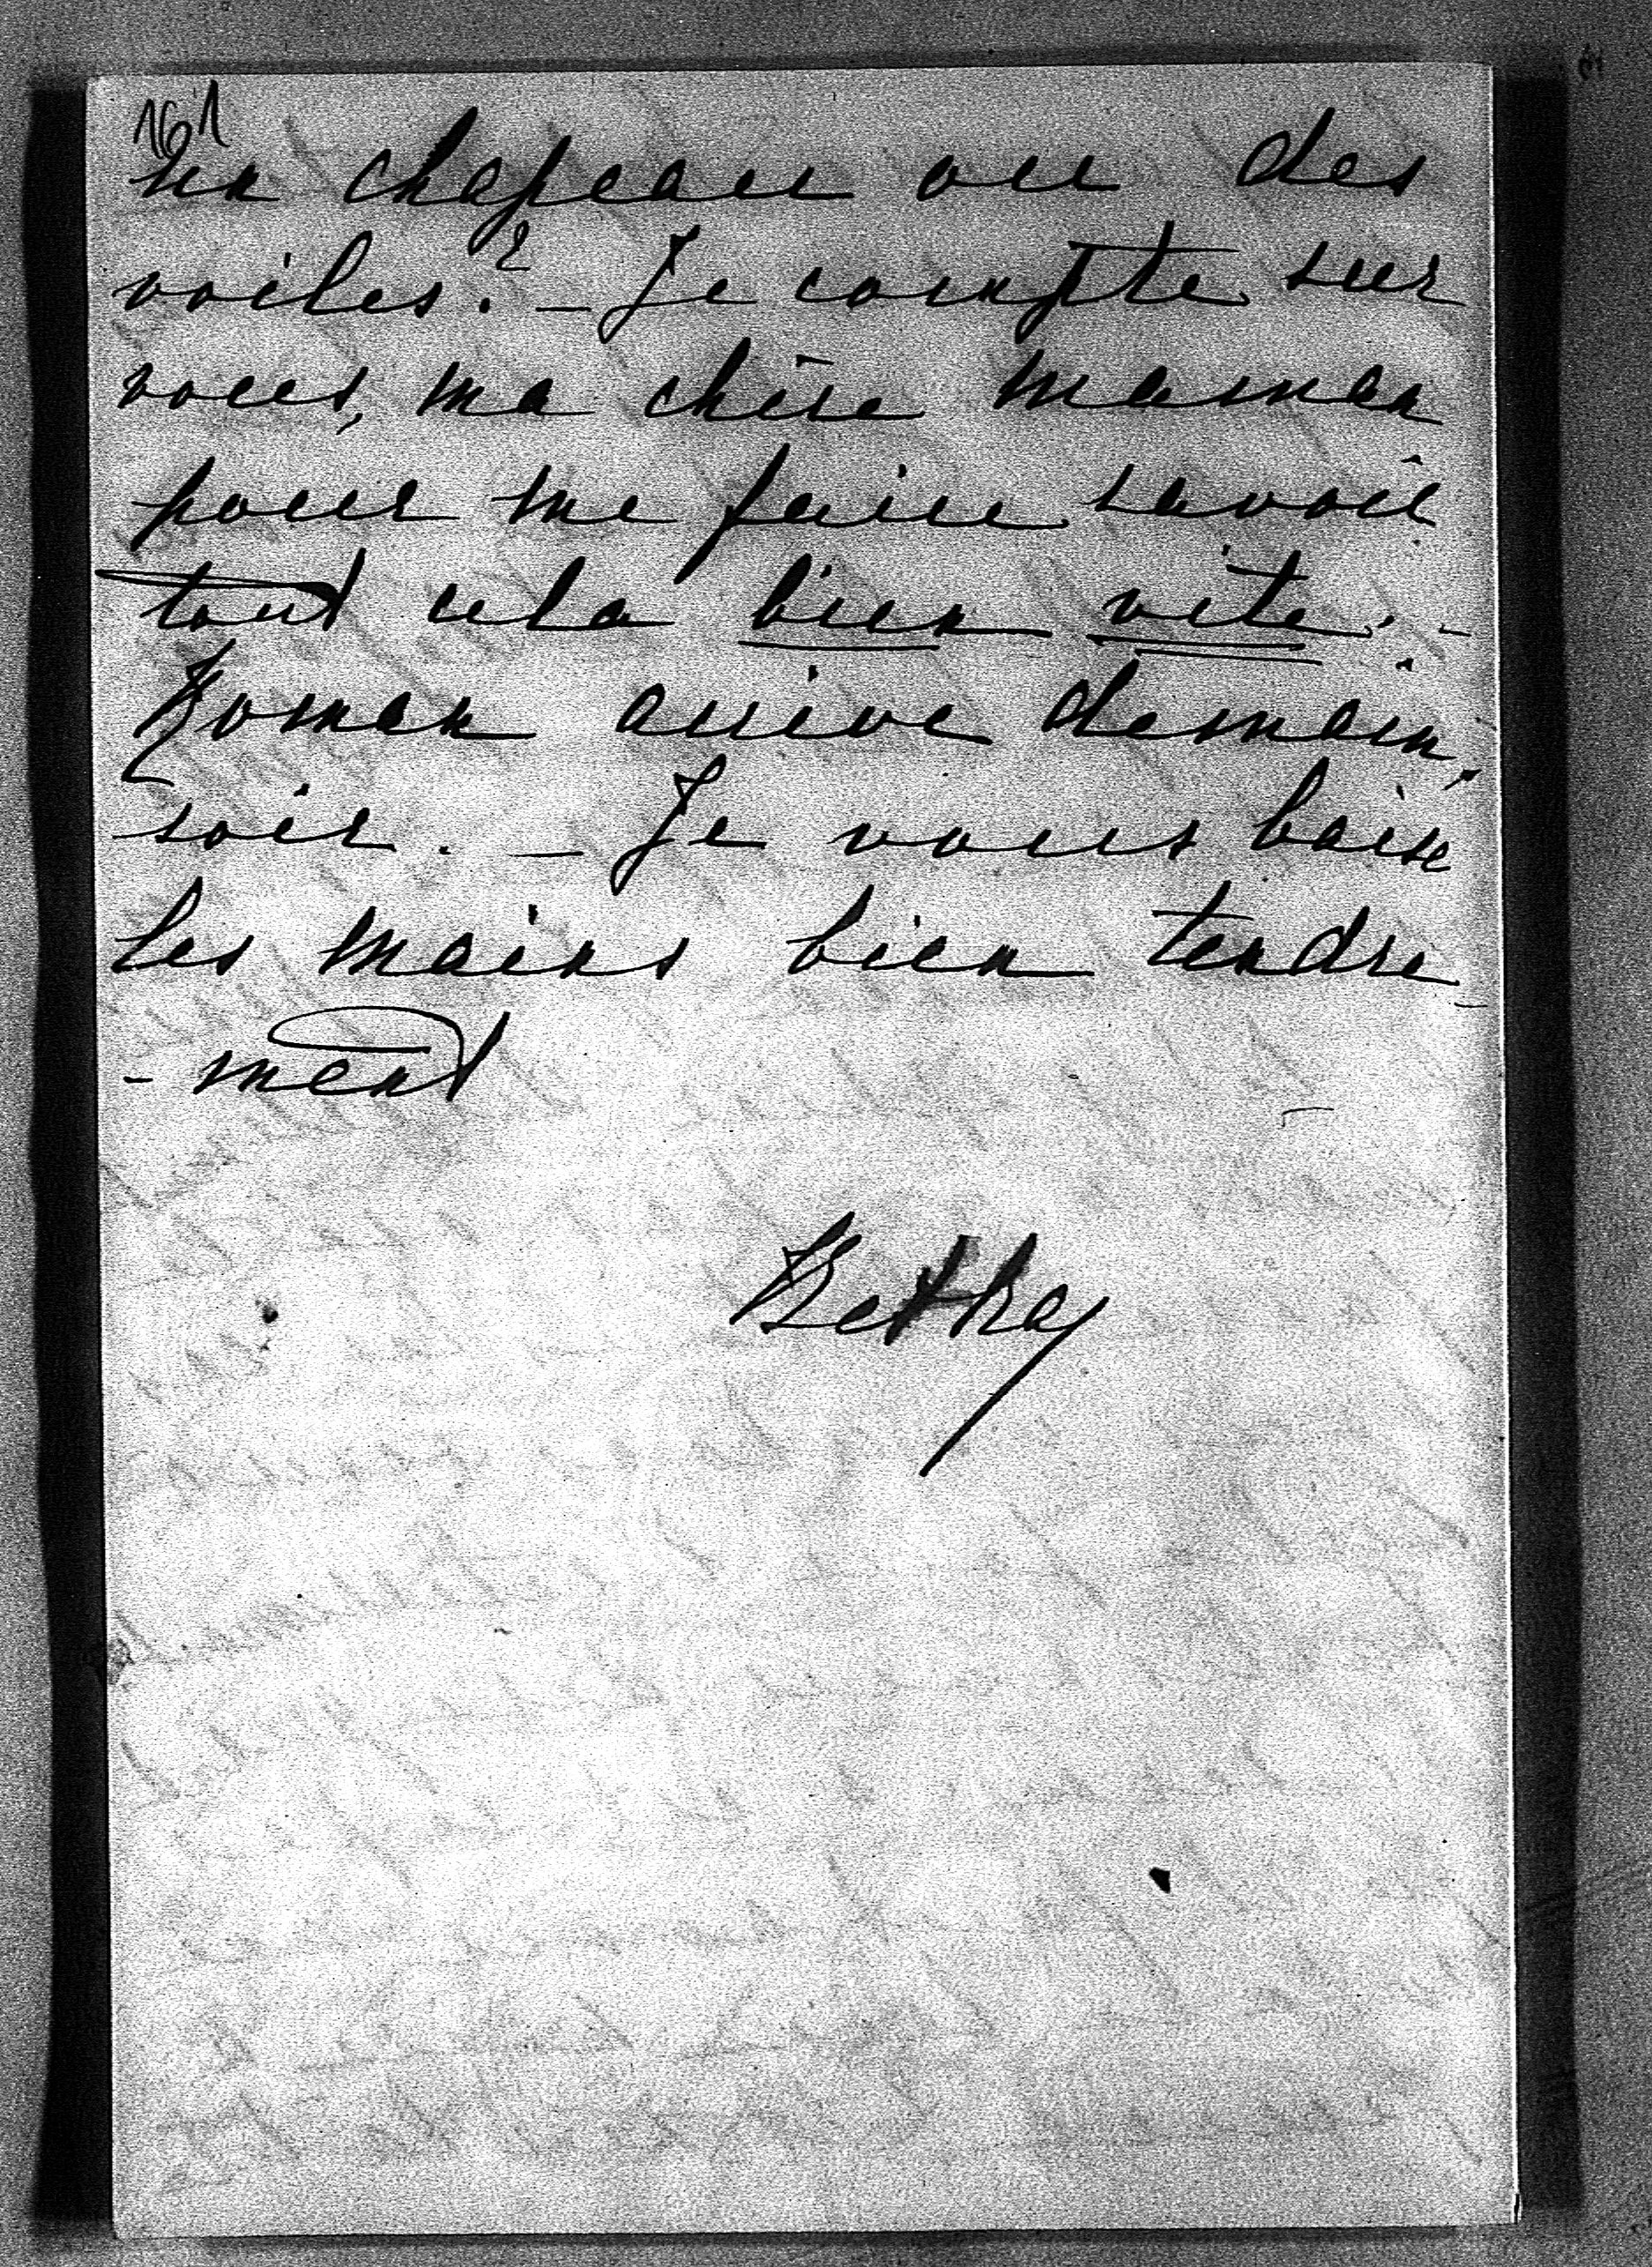 161
un chapeau ou des
voiles? — Je compte sur
vous, ma chère maman
pour me faire savoir
tout cela bien vite. -
Roman arrive demain
soir. — Je vous baise
les mains bien tendre-
- ment
Betka